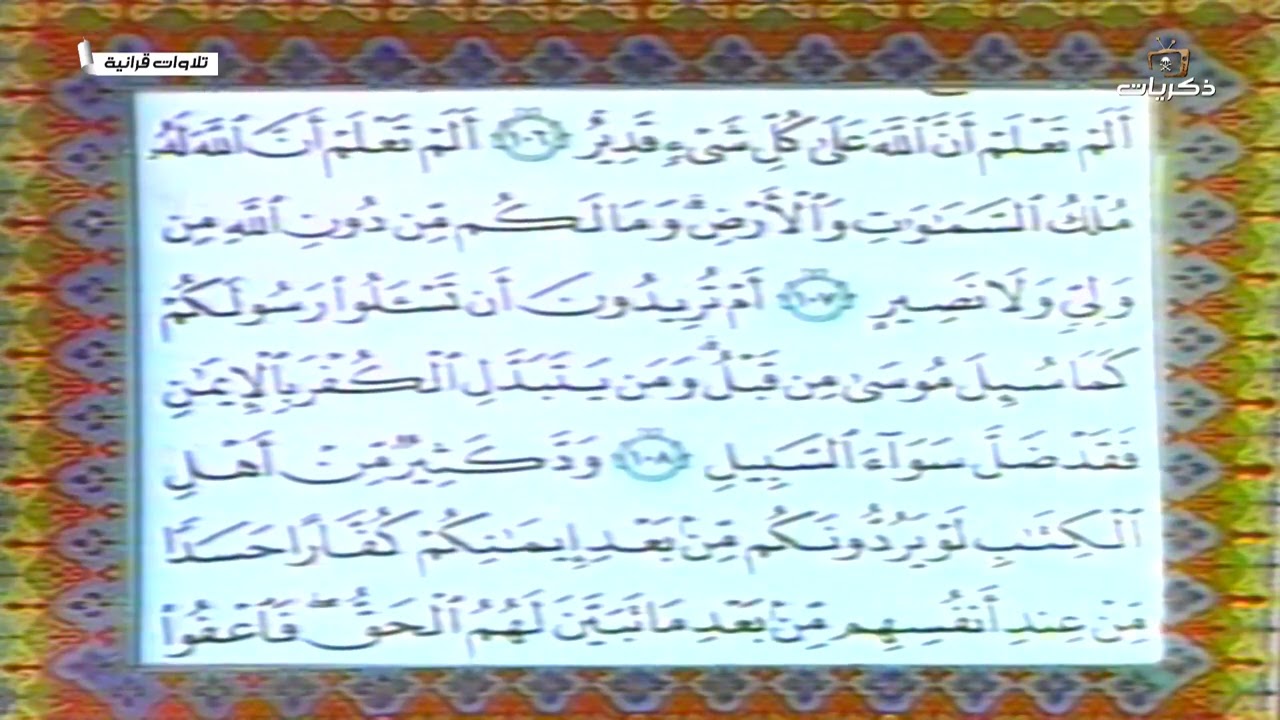 تلاوات قرآنية
ذكريات
أَلَمْ تَعْلَمْ أَنَّ ٱللَّهَ عَلَىٰ كُلِّ شَىْءٍ قَدِيرٌ ١٠٦ أَلَمْ تَعْلَمْ أَنَّ ٱللَّهَ لَهُۥ
مُلْكُ ٱلسَّمَٰوَٰتِ وَٱلْأَرْضِ ۗ وَمَا لَكُم مِّن دُونِ ٱللَّهِ مِن
وَلِىٍّ وَلَا نَصِيرٍ ١٠٧ أَمْ تُرِيدُونَ أَن تَسْـَٔلُوا۟ رَسُولَكُمْ
كَمَا سُئِلَ مُوسَىٰ مِن قَبْلُ ۗ وَمَن يَتَبَدَّلِ ٱلْكُفْرَ بِٱلْإِيمَٰنِ
فَقَدْ ضَلَّ سَوَآءَ ٱلسَّبِيلِ ١٠٨ وَدَّ كَثِيرٌ مِّنْ أَهْلِ
ٱلْكِتَٰبِ لَوْ يَرُدُّونَكُم مِّنۢ بَعْدِ إِيمَٰنِكُمْ كُفَّارًا حَسَدًا
مِّنْ عِندِ أَنفُسِهِم مِّنۢ بَعْدِ مَا تَبَيَّنَ لَهُمُ ٱلْحَقُّ ۖ فَٱعْفُوا۟